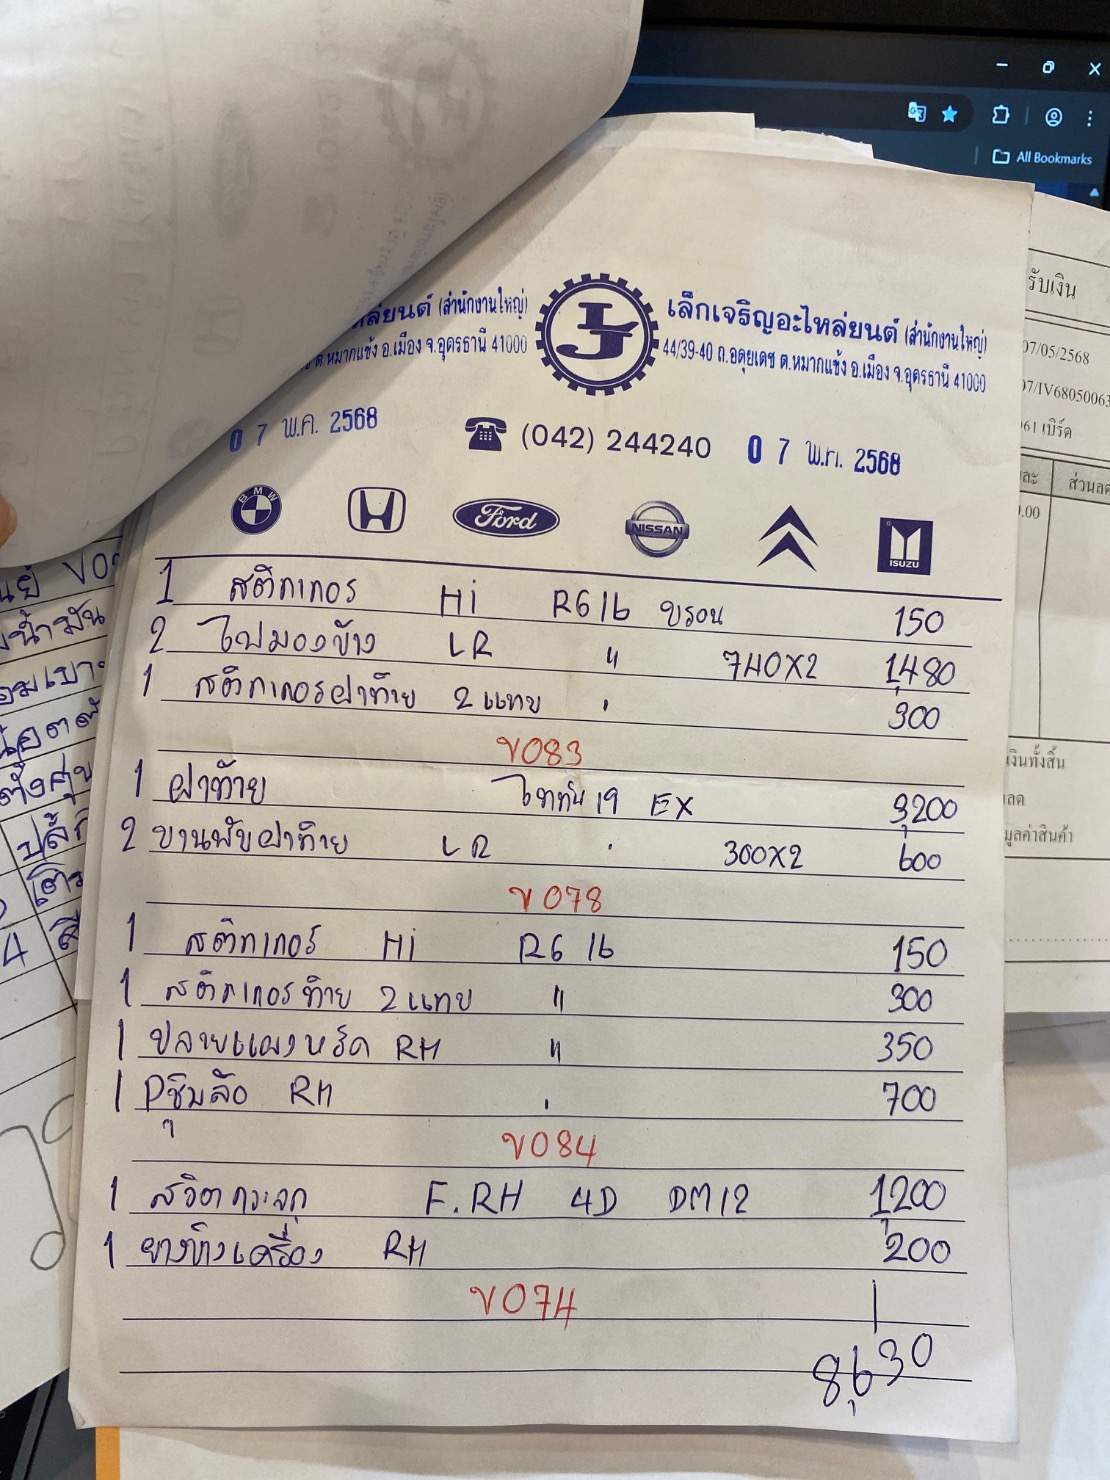 All Bookmarks
หล่ยนต์ (สำนักงานใหญ่)
ต.หมากแข้ง อ.เมือง จ.อุดรธานี 41000
เล็กเจริญอะไหล่ยนต์ (สำนักงานใหญ่)
44/39-40 ถ.อดุยเดช ต.หมากแข้ง อ.เมือง จ.อุดรธานี 41000
0 7 พ.ค. 2568
(042) 244240
0 7 พ.ค. 2568
BMW Ford NISSAN ISUZU
1 สติกเกอร Hi R6 16 บรอน 150
2 ไฟมองข้าง LR " 740X2 1,480
1 สติกเกอรฝาท้าย 2 แทบ " 300
V083
1 ฝาท้าย ไททัน 19 EX 3,200
2 บานพับฝาท้าย LR " 300X2 600
V078
1 สติกเกอร์ Hi R6 16 150
1 สติกเกอรท้าย 2 แทบ " 300
1 ปลายแผงหรัด RH " 350
1 Pซุ้มล้อ RH " 700
V084
1 สวิตกระจก F.RH 4D DM12 1,200
1 ยางข้างเครื่อง RH 200
V074
8,630
รับเงิน
07/05/2568
07/IV68050063
061 เบิร์ด
ละ ส่วนลด
0.00
เงินทั้งสิ้น
ลด
มูลค่าสินค้า
น้ำมัน